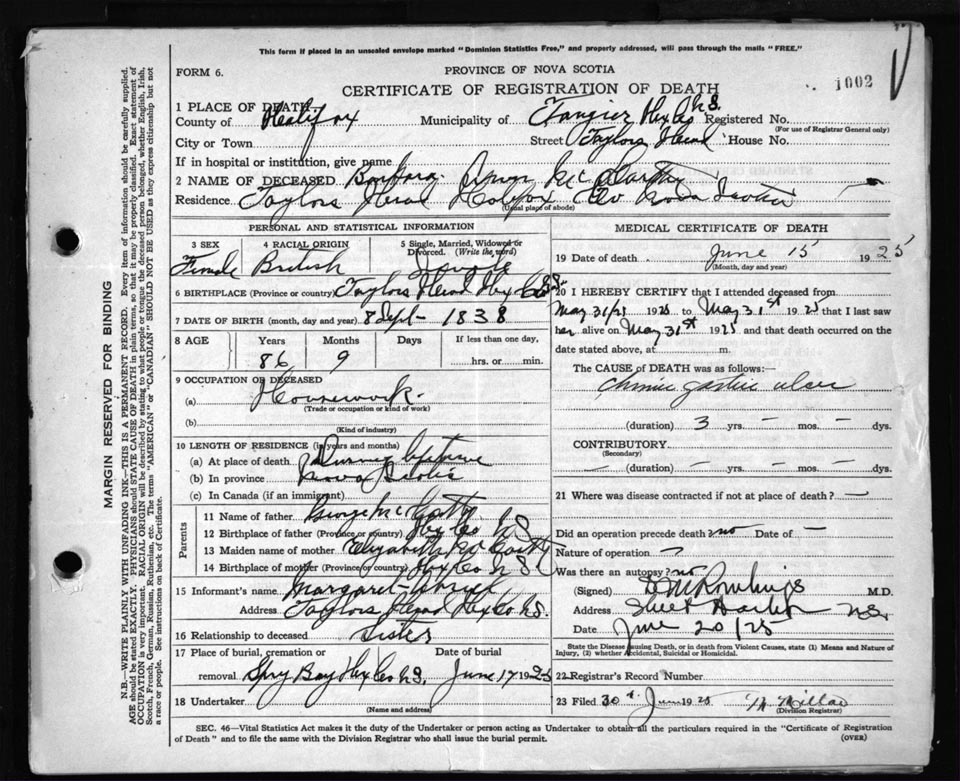 This form if placed in an unsealed envelope marked "Dominion Statistics Free," and properly addressed, will pass through the mails "FREE."
FORM 6. PROVINCE OF NOVA SCOTIA
CERTIFICATE OF REGISTRATION OF DEATH 1002
1 PLACE OF DEATH
County of Halifax Municipality of Tangier Hfx Co N.S. Registered No.
(For use of Registrar General only)
City or Town Street Taylors Head House No.
If in hospital or institution, give name
2 NAME OF DECEASED Barbara McCarthy
Residence Taylors Head Halifax Co Nova Scotia
(Usual place of abode)
PERSONAL AND STATISTICAL INFORMATION
3 SEX 4 RACIAL ORIGIN 5 Single, Married, Widowed or Divorced. (Write the word)
Female British Single
6 BIRTHPLACE (Province or country) Taylors Head Hfx Co N.S.
7 DATE OF BIRTH (month, day and year) 8 Sept - 1838
8 AGE Years Months Days If less than one day,
86 9 hrs. or min.
9 OCCUPATION OF DECEASED
(a) Housework.
(Trade or occupation or kind of work)
(b)
(Kind of industry)
10 LENGTH OF RESIDENCE (in years and months)
(a) At place of death During lifetime
(b) In province Nova Scotia
(c) In Canada (if an immigrant)
Parents
11 Name of father George McCarthy
12 Birthplace of father (Province or country) Hfx Co N.S.
13 Maiden name of mother Elizabeth McCarthy
14 Birthplace of mother (Province or country) Hfx Co N S
15 Informant's name Margaret
Address Taylors Head Hfx Co N.S.
16 Relationship to deceased Sister
17 Place of burial, cremation or Date of burial
removal Spry Bay Hfx Co N.S. June 17 1925
18 Undertaker
(Name and address)
MEDICAL CERTIFICATE OF DEATH
19 Date of death June 15 1925
(Month, day and year)
20 I HEREBY CERTIFY that I attended deceased from
May 31/25 1925 to May 31st 1925 that I last saw
her alive on May 31st 1925 and that death occurred on
date stated above, at m.
The CAUSE OF DEATH was as follows:—
Chronic gastric ulcer
(duration) 3 yrs. - mos. - ds.
CONTRIBUTORY.
(Secondary)
— (duration) — yrs. — mos. — ds.
21 Where was disease contracted if not at place of death? —
Did an operation precede death? no Date of —
Nature of operation —
Was there an autopsy? no
(Signed) D M Rowlings M.D.
Address Sheet Harbor N.S.
Date June 20/25
State the Disease Causing Death, or in death from Violent Causes, state (1) Means and Nature of
Injury, (2) whether Accidental, Suicidal or Homicidal.
22 Registrar's Record Number
23 Filed 30th June 1925
(Division Registrar)
SEC. 46—Vital Statistics Act makes it the duty of the Undertaker or person acting as Undertaker to obtain all the particulars required in the "Certificate of Registration
of Death" and to file the same with the Division Registrar who shall issue the burial permit. (OVER)
MARGIN RESERVED FOR BINDING
N.B.—WRITE PLAINLY WITH UNFADING INK—THIS IS A PERMANENT RECORD. Every item of information should be carefully supplied.
AGE should be stated EXACTLY. PHYSICIANS should STATE CAUSE OF DEATH in plain terms, so that it may be properly classified. Exact statement of
OCCUPATION is very important. RACIAL ORIGIN will be described by stating to what people or tongue the deceased person belonged, whether English, Irish,
Scotch, French, German, Russian, Ruthenian, etc. The terms "AMERICAN" or "CANADIAN" SHOULD NOT BE USED as they express citizenship but not
a race or people. See instructions on back of Certificate.